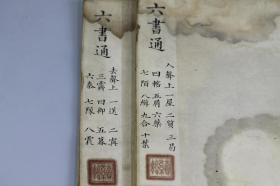 六書通
入聲上一屋 二質 三曷
四 五屑 六藥
七陌 八緝 九合 十葉
六書通
去聲上一送 二寘
三霽 四御 五暮
六泰 七隊 八震